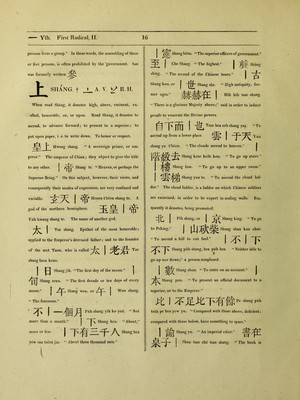 一 Yih. First Radical, II. 16
persons from a group." In these words, the assembling of three
or five persons, is often prohibited by the government.
was formerly written 參
上 SHÁNG. A. V. R. H.
When read Sháng, it denotes high, above, eminent,
honorable, on, or upon. Read Shang, it denotes to
ascend, to advance forward; to present to a superior; to
put upon paper, to write down. To honor or respect.
皇上 Hwang shang, "A sovereign prince, or emperor."
The emperor of China; they object to give the title
to any other. 上帝 Shang te "Heaven, or perhaps the
Supreme Being." On this subject, however, their views, and
consequently their modes of expression, are very confused and
variable. 玄天上帝 Heuen t'hëen shang te. A
god of the northern hemisphere. 玉皇上帝
Yuh hwang shang te. The name of another god.
太上 Tae shang. Epithet of the most honorable;
applied to the Emperor's dethroned father; and to the founder
of the sect Taou, who is called 太上老君 Tae
shang laou keun.
上日 Shang jih. "The first day of the moon." 上
旬 Shang seun. "The first decade or ten days of every
moon." 上午 Shang woo, or 午上 Woo shang.
"The forenoon."
不上一個月 Pŭh shang yĭh ko yuĕ. "Not
more than a month." 上下 Shang hea. "About,"
more or less. 上下有三千人 Shang hea
yew san tsëen jin. "About three thousand men."
上憲 Shang hëen. "The superior officers of government."
至上 Che Shang. "The highest." 上
Shang. "The second of the Chinese tones." 上古
Shang koo, or 上世 Shang she. "High antiquity; former
ages." 赫赫在上 Hih hih tsae shang.
"There is a glorious Majesty above;" said in order to induce
people to venerate the Divine powers.
自下而上也 Tsze hea urh shang yay. "To
ascend up from a lower place." 雲上于天 Yun
shang yu t'hëen. "The clouds ascend to heaven."
"To go up stairs"
上樓 "To go up to an upper room."
上雲梯 Shang yun te. "To ascend the cloud ladder."
The cloud ladder, is a ladder on which Chinese soldiers
are exercised, in order to be expert in scaling walls.
quently it denotes, being promoted.
上北 上京 Shang king. "To go
to Peking." 上山砍柴 Shang shan kan chae.
"To ascend a hill to cut fuel." 不上不下
Pŭh shang pŭh hea. "Neither able to
go up nor down;" a person perplexed.
上數 Shang shoo. "To enter on an account." 上
本 Shang pun. "To present an official document to a
superior, or to the Emperor."
比上不足比下有餘 Pe shang pŭh
tsŭh pe hea yew yu. "Compared with those above, deficient;
compared with those below, have something to spare."
上諭 Shang yu. "An imperial edict." 書在
桌子上 Shoo tsae chŏ tsze shang. "The book is